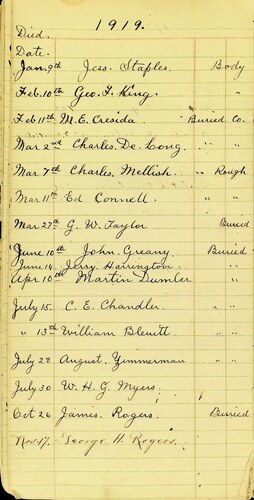 1919.
Died.
Date.
Jan. 9th Jess. Staples Body
Feb. 10th Geo. F. King. " "
Feb 11th M. E. Cresida Buried Co.
Mar 2nd Charles. De Long. " "
Mar 7th Charles, Mellish " Rough
Mar 11th Ed Connell " "
Mar 27th G. W. Taylor Buried
June 10th John. Greany Buried
June 14 Jerry Harrington " "
Apr 10th Martin Dumler " "
July 15. C. E. Chandler " "
" 13th William Blewitt " "
July 28 August. Zimmerman " "
July 30 W. H. G. Myers.
Oct 26 James. Rogers Buried
Nov. 17. George H. Rogers. " "